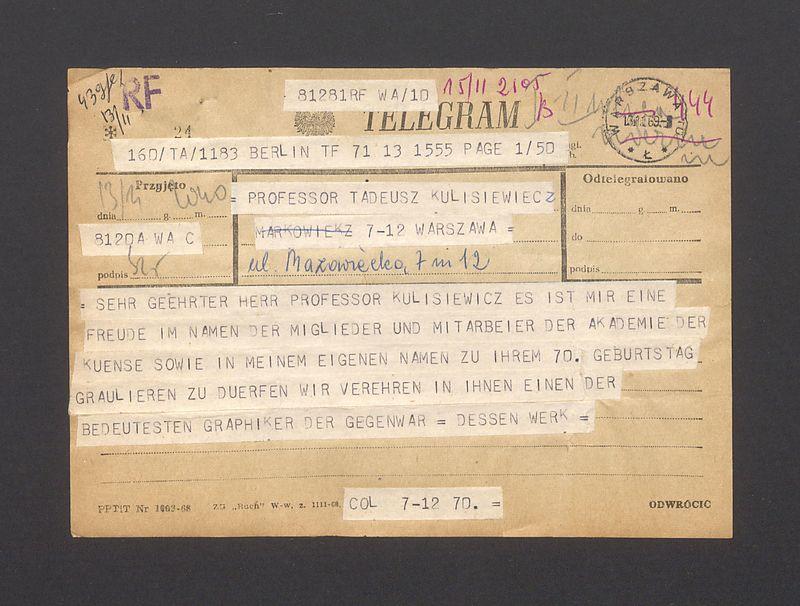 439/el
RF
13/II
81281RF WA/1D
15/II 2105
TELEGRAM
WARSZAWA
144
24
160/TA/1183 BERLIN TF 71 13 1555 PAGE 1/50
Przyjęto
Odtelegrafowano
= PROFESSOR TADEUSZ KULISIEWIECZ
dnia g. m.
MARKOWIEKZ 7-12 WARSZAWA =
dnia g. m.
812DA WA C
do
ul. Mazowiecka 7 m 12
podpis
podpis
= SEHR GEEHRTER HERR PROFESSOR KULISIEWICZ ES IST MIR EINE
FREUDE IM NAMEN DER MIGLIEDER UND MITARBEIER DER AKADEMIE DER
KUENSE SOWIE IN MEINEM EIGENEN NAMEN ZU IHREM 70. GEBURTSTAG
GRAULIEREN ZU DUERFEN WIR VEREHREN IN IHNEN EINEN DER
BEDEUTESTEN GRAPHIKER DER GEGENWAR = DESSEN WERK =
PPTiT Nr 1003-68 ZG „Ruch” W-w, z. 1111-68
COL 7-12 7D. =
ODWRÓCIC